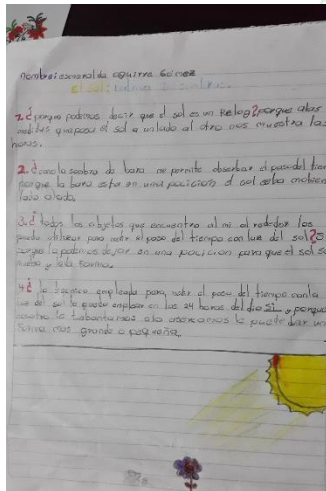 Nombre: esmeralda aguirre Gómez
El sol:
1.¿ porque podemos decir que el sol es un Relog? porque a las
medidas que pasa el sol a un lado al otro nos muestra las
horas.
2.¿ como la sombra de bara me permite obserbar el paso del
porque la bara esta en una posicion el sol esta
lado a lado.
3.¿ todos los objetos que encuentro al mi al rededor los
puedo utilizar para medir el paso del tiempo con lus del sol?
porque lo podemos dejar en una posicion para que el sol
y la forma.
4.¿ la tecnica empleada para medir el paso del tiempo con la
lus del sol la puedo emplear en las 24 horas del dia Si y porque
nosotro lo a lo le puede dar un
forma mas grande o pequeña.